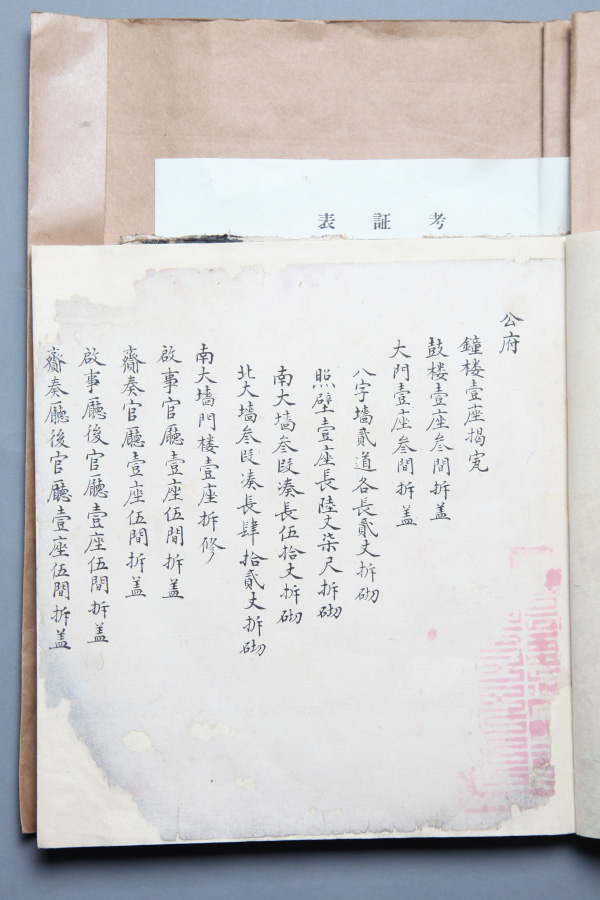 考証表
公府
鐘楼壹座揭
鼓楼壹座叁間拆盖
大門壹座叁間拆盖
八字墻貳道各長貳丈拆砌
照壁壹座長陸丈柒尺拆砌
南大墻叁段凑長伍拾丈拆砌
北大墻叁段凑長肆拾貳丈拆砌
南大墻門楼壹座拆修
啟事官廳壹座伍間拆盖
齎奏官廳壹座伍間拆盖
啟事廳後官廳壹座伍間拆盖
齎奏廳後官廳壹座伍間拆盖